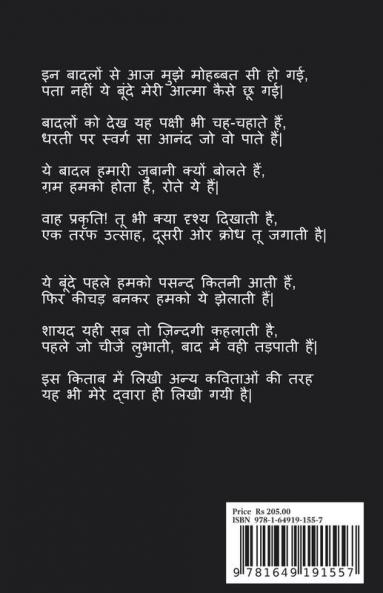 इन बादलों से आज मुझे मोहब्बत सी हो गई,
पता नहीं ये बूंदे मेरी आत्मा कैसे छू गई|
बादलों को देख यह पक्षी भी चह-चहाते हैं,
धरती पर स्वर्ग सा आनंद जो वो पाते हैं|
ये बादल हमारी जुबानी क्यों बोलते हैं,
ग़म हमको होता है, रोते ये हैं|
वाह प्रकृति! तू भी क्या दृश्य दिखाती है,
एक तरफ उत्साह, दूसरी ओर क्रोध तू जगाती है|
ये बूंदे पहले हमको पसन्द कितनी आती हैं,
फिर कीचड़ बनकर हमको ये झेलाती हैं|
शायद यही सब तो ज़िन्दगी कहलाती है,
पहले जो चीजें लुभाती, बाद में वही तड़पाती हैं|
इस किताब में लिखी अन्य कविताओं की तरह
यह भी मेरे द्वारा ही लिखी गयी है|
Price Rs 205.00
ISBN 978-1-64919-155-7
9 781649 191557